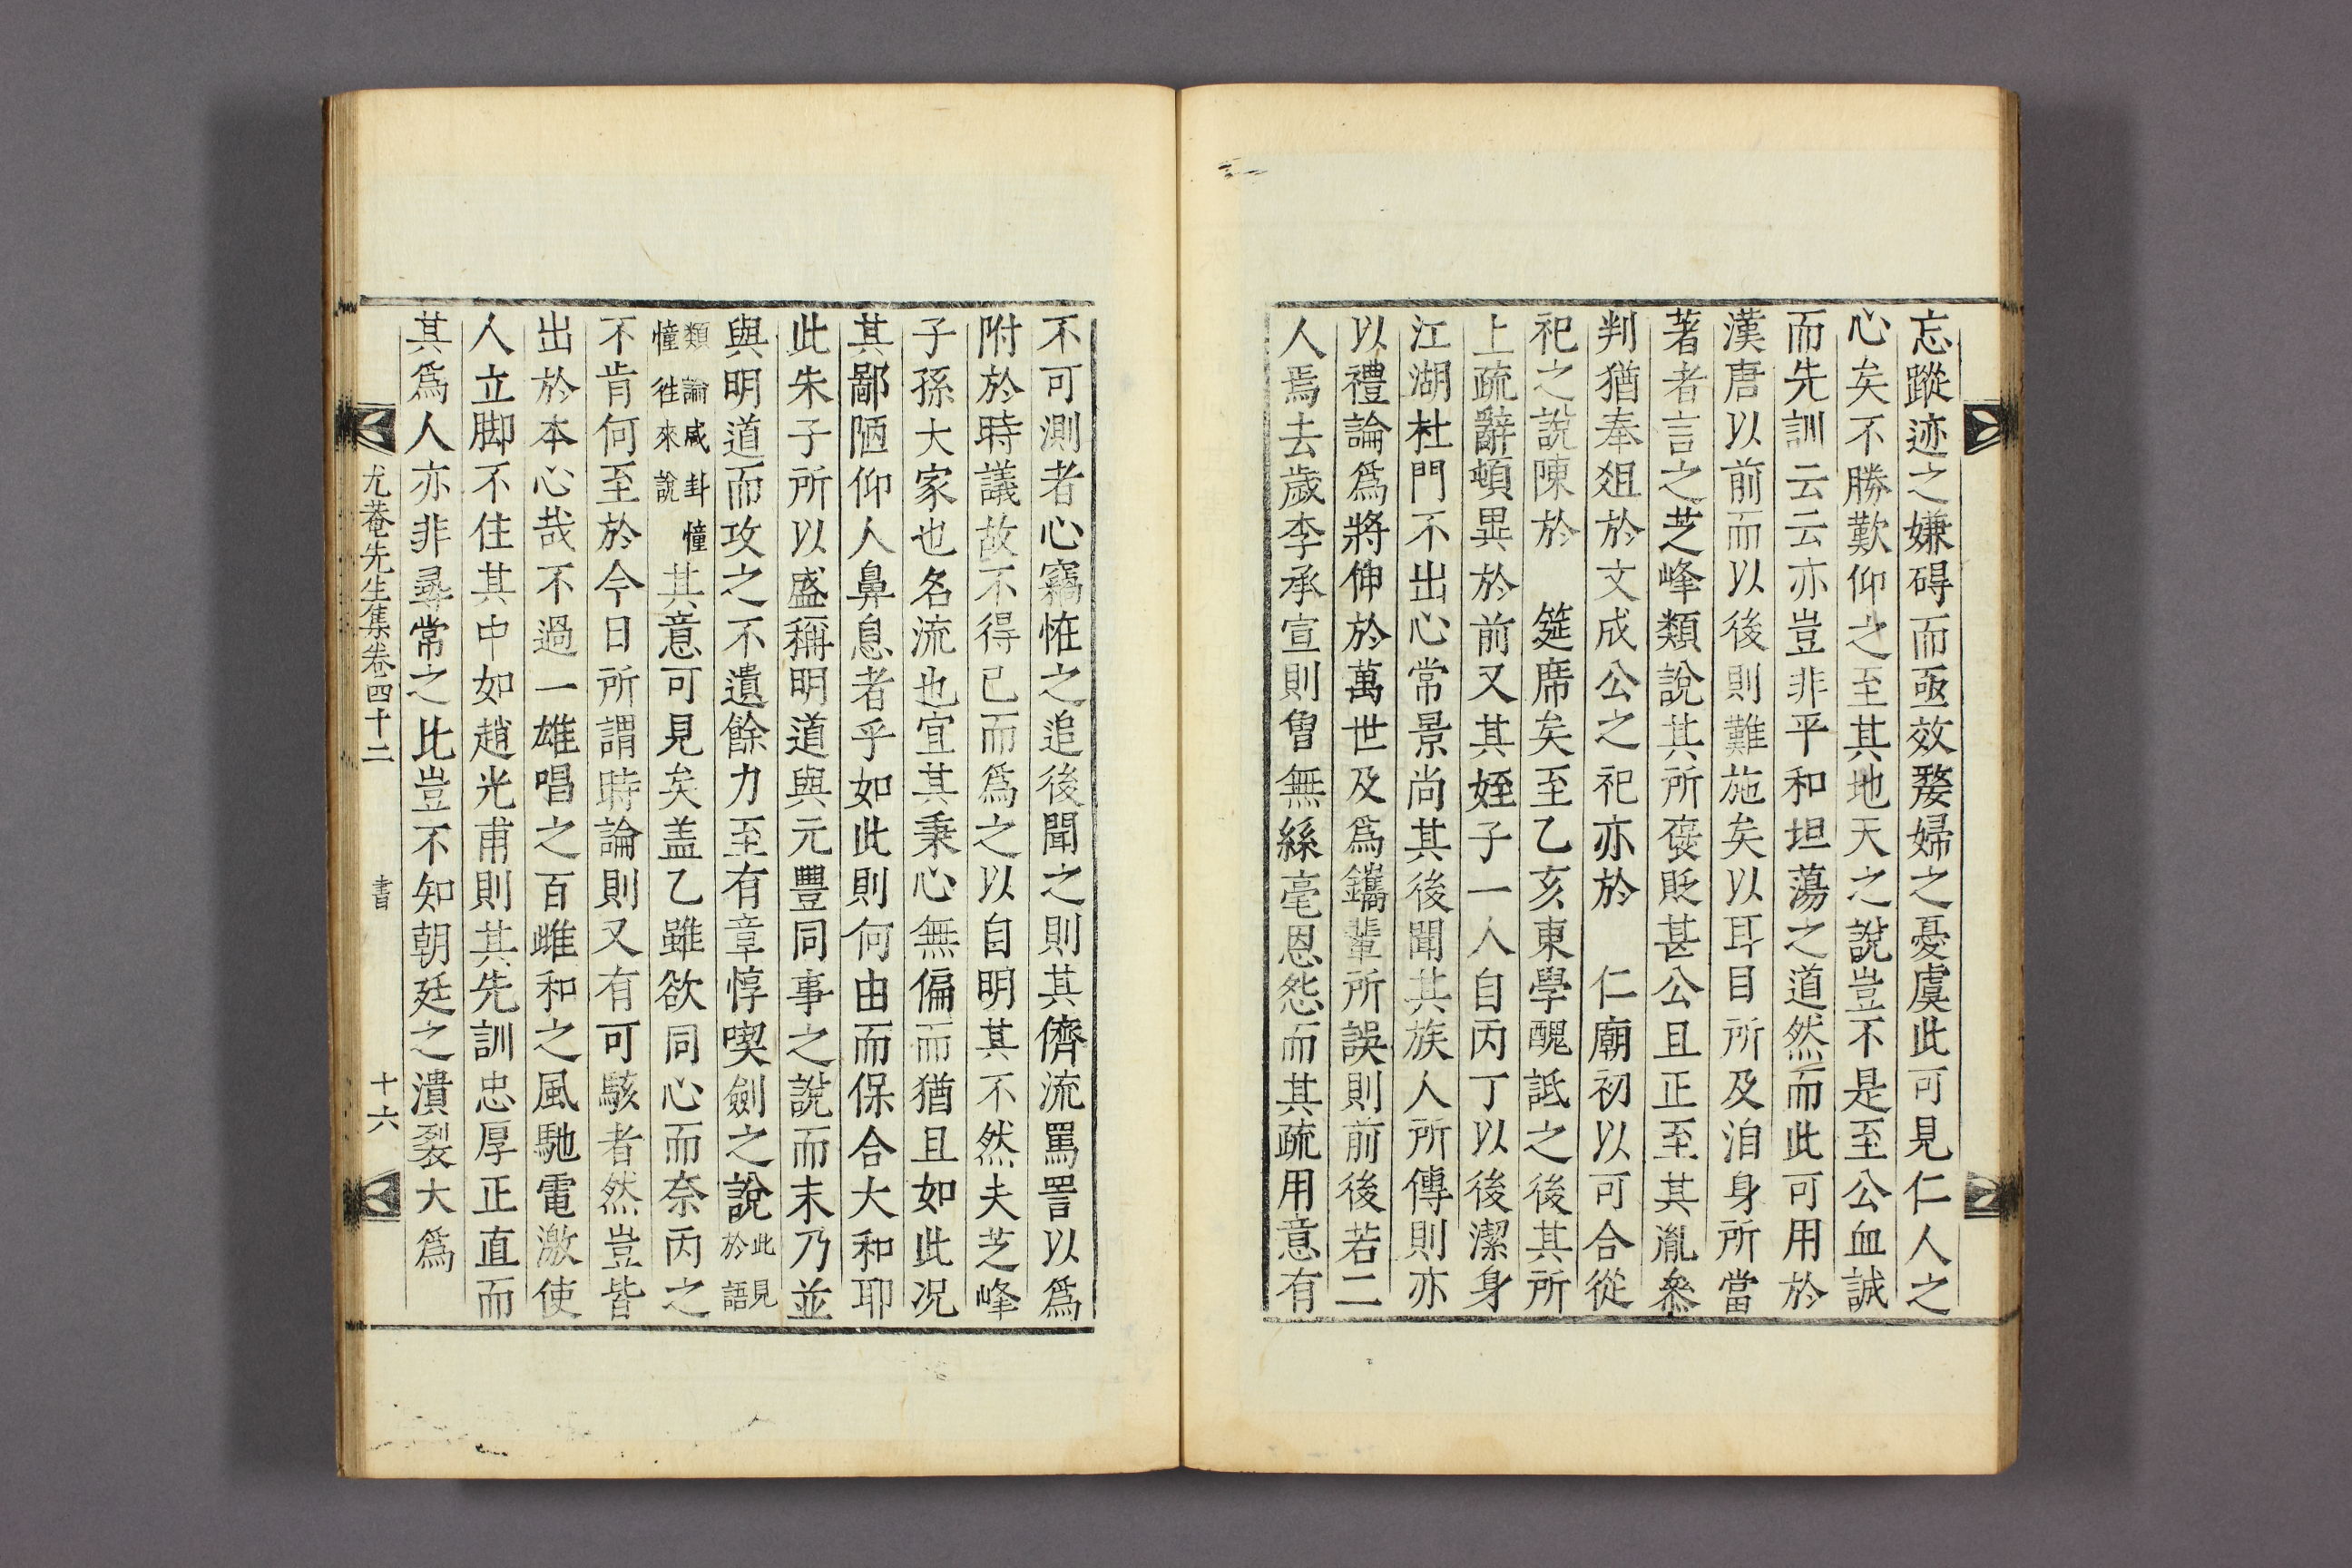 忘蹤迹之嫌碍而亟效嫠婦之憂虞此可見仁人之
心矣不勝歎仰之至其地天之說豈不是至公血誠
而先訓云云亦豈非平和坦蕩之道然而此可用於
漢唐以前而以後則難施矣以耳目所及洎身所當
著者言之芝峰類說其所褒貶甚公且正至其胤叅
判猶奉俎於文成公之祀亦於 仁廟初以可合從
祀之說陳於 筵席矣至乙亥東學醜詆之後其所
上疏辭頓異於前又其姪子一人自丙丁以後潔身
江湖杜門不出心常景尚其後聞其族人所傳則亦
以禮論爲將伸於萬世及爲鑴輩所誤則前後若二
人焉去歲李承宣則曾無絲毫恩怨而其疏用意有
不可測者心竊恠之追後聞之則其儕流罵詈以爲
附於時議故不得已而爲之以自明其不然夫芝峰
子孫大家也名流也宜其秉心無偏而猶且如此况
其鄙陋仰人鼻息者乎如此則何由而保合大和耶
此朱子所以盛稱明道與元豐同事之說而末乃並
與明道而攻之不遺餘力至有章惇喫劍之說此見於語
類論咸卦憧憧徃來說其意可見矣盖乙雖欲同心而奈丙之
不肯何至於今日所謂時論則又有可駭者然豈皆
出於本心哉不過一雄唱之百雌和之風馳電激使
人立脚不住其中如趙光甫則其先訓忠厚正直而
其爲人亦非尋常之比豈不知朝廷之潰裂大爲
尤菴先生集卷四十二 書 十六